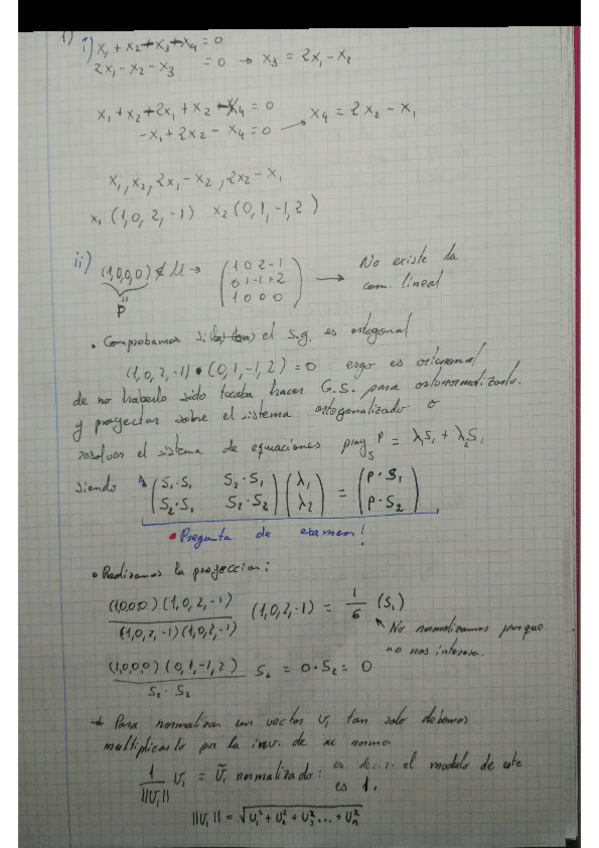 1) i) x₁ + x₂ + x₃ + x₄ = 0
2x₁ - x₂ - x₃ = 0 → x₃ = 2x₁ - x₂
x₁ + x₂ + 2x₁ + x₂ - x₄ = 0
-x₁ + 2x₂ - x₄ = 0 → x₄ = 2x₂ - x₁
x₁, x₂, 2x₁ - x₂, 2x₂ - x₁
x₁ (1,0,2,-1) x₂ (0,1,-1,2)
ii) (1,0,0,0) ∉ U → (1 0 2 -1 → No existe la
0 1 -1 +2 com. lineal
1 0 0 0)
p
• Comprobamos si el s.g. es ortogonal
(1,0,2,-1) • (0,1,-1,2) = 0 ergo es
de no haberlo sido tocaba hacer G.S. para ortonormalizarlo.
y proyectar sobre el sistema ortogonalizado o
resolver el sistema de equaciones proy_S P = λ₁S₁ + λ₂S₂
siendo (S₁·S₁ S₂·S₁) (λ₁) = (P·S₁)
(S₂·S₁ S₂·S₂) (λ₂) (P·S₂)
• Pregunta de examen!
• Realizamos la proyeccion:
(1,0,0,0) (1,0,2,-1) / (1,0,2,-1) (1,0,2,-1) (1,0,2,-1) = 1/6 (S₁)
No normalizamos porque
no nos interesa.
(1,0,0,0) (0,1,-1,2) / S₂ · S₂ S₂ = 0 · S₂ = 0
Para normalizar un vector U₁ tan solo debemos
multiplicarlo por la inv. de su norma
1/||U₁|| U₁ = Ũ₁ normalizado: es decir el modulo de este
es 1.
||U₁|| = √U₁² + U₂² + U₃² ... + Uₙ²